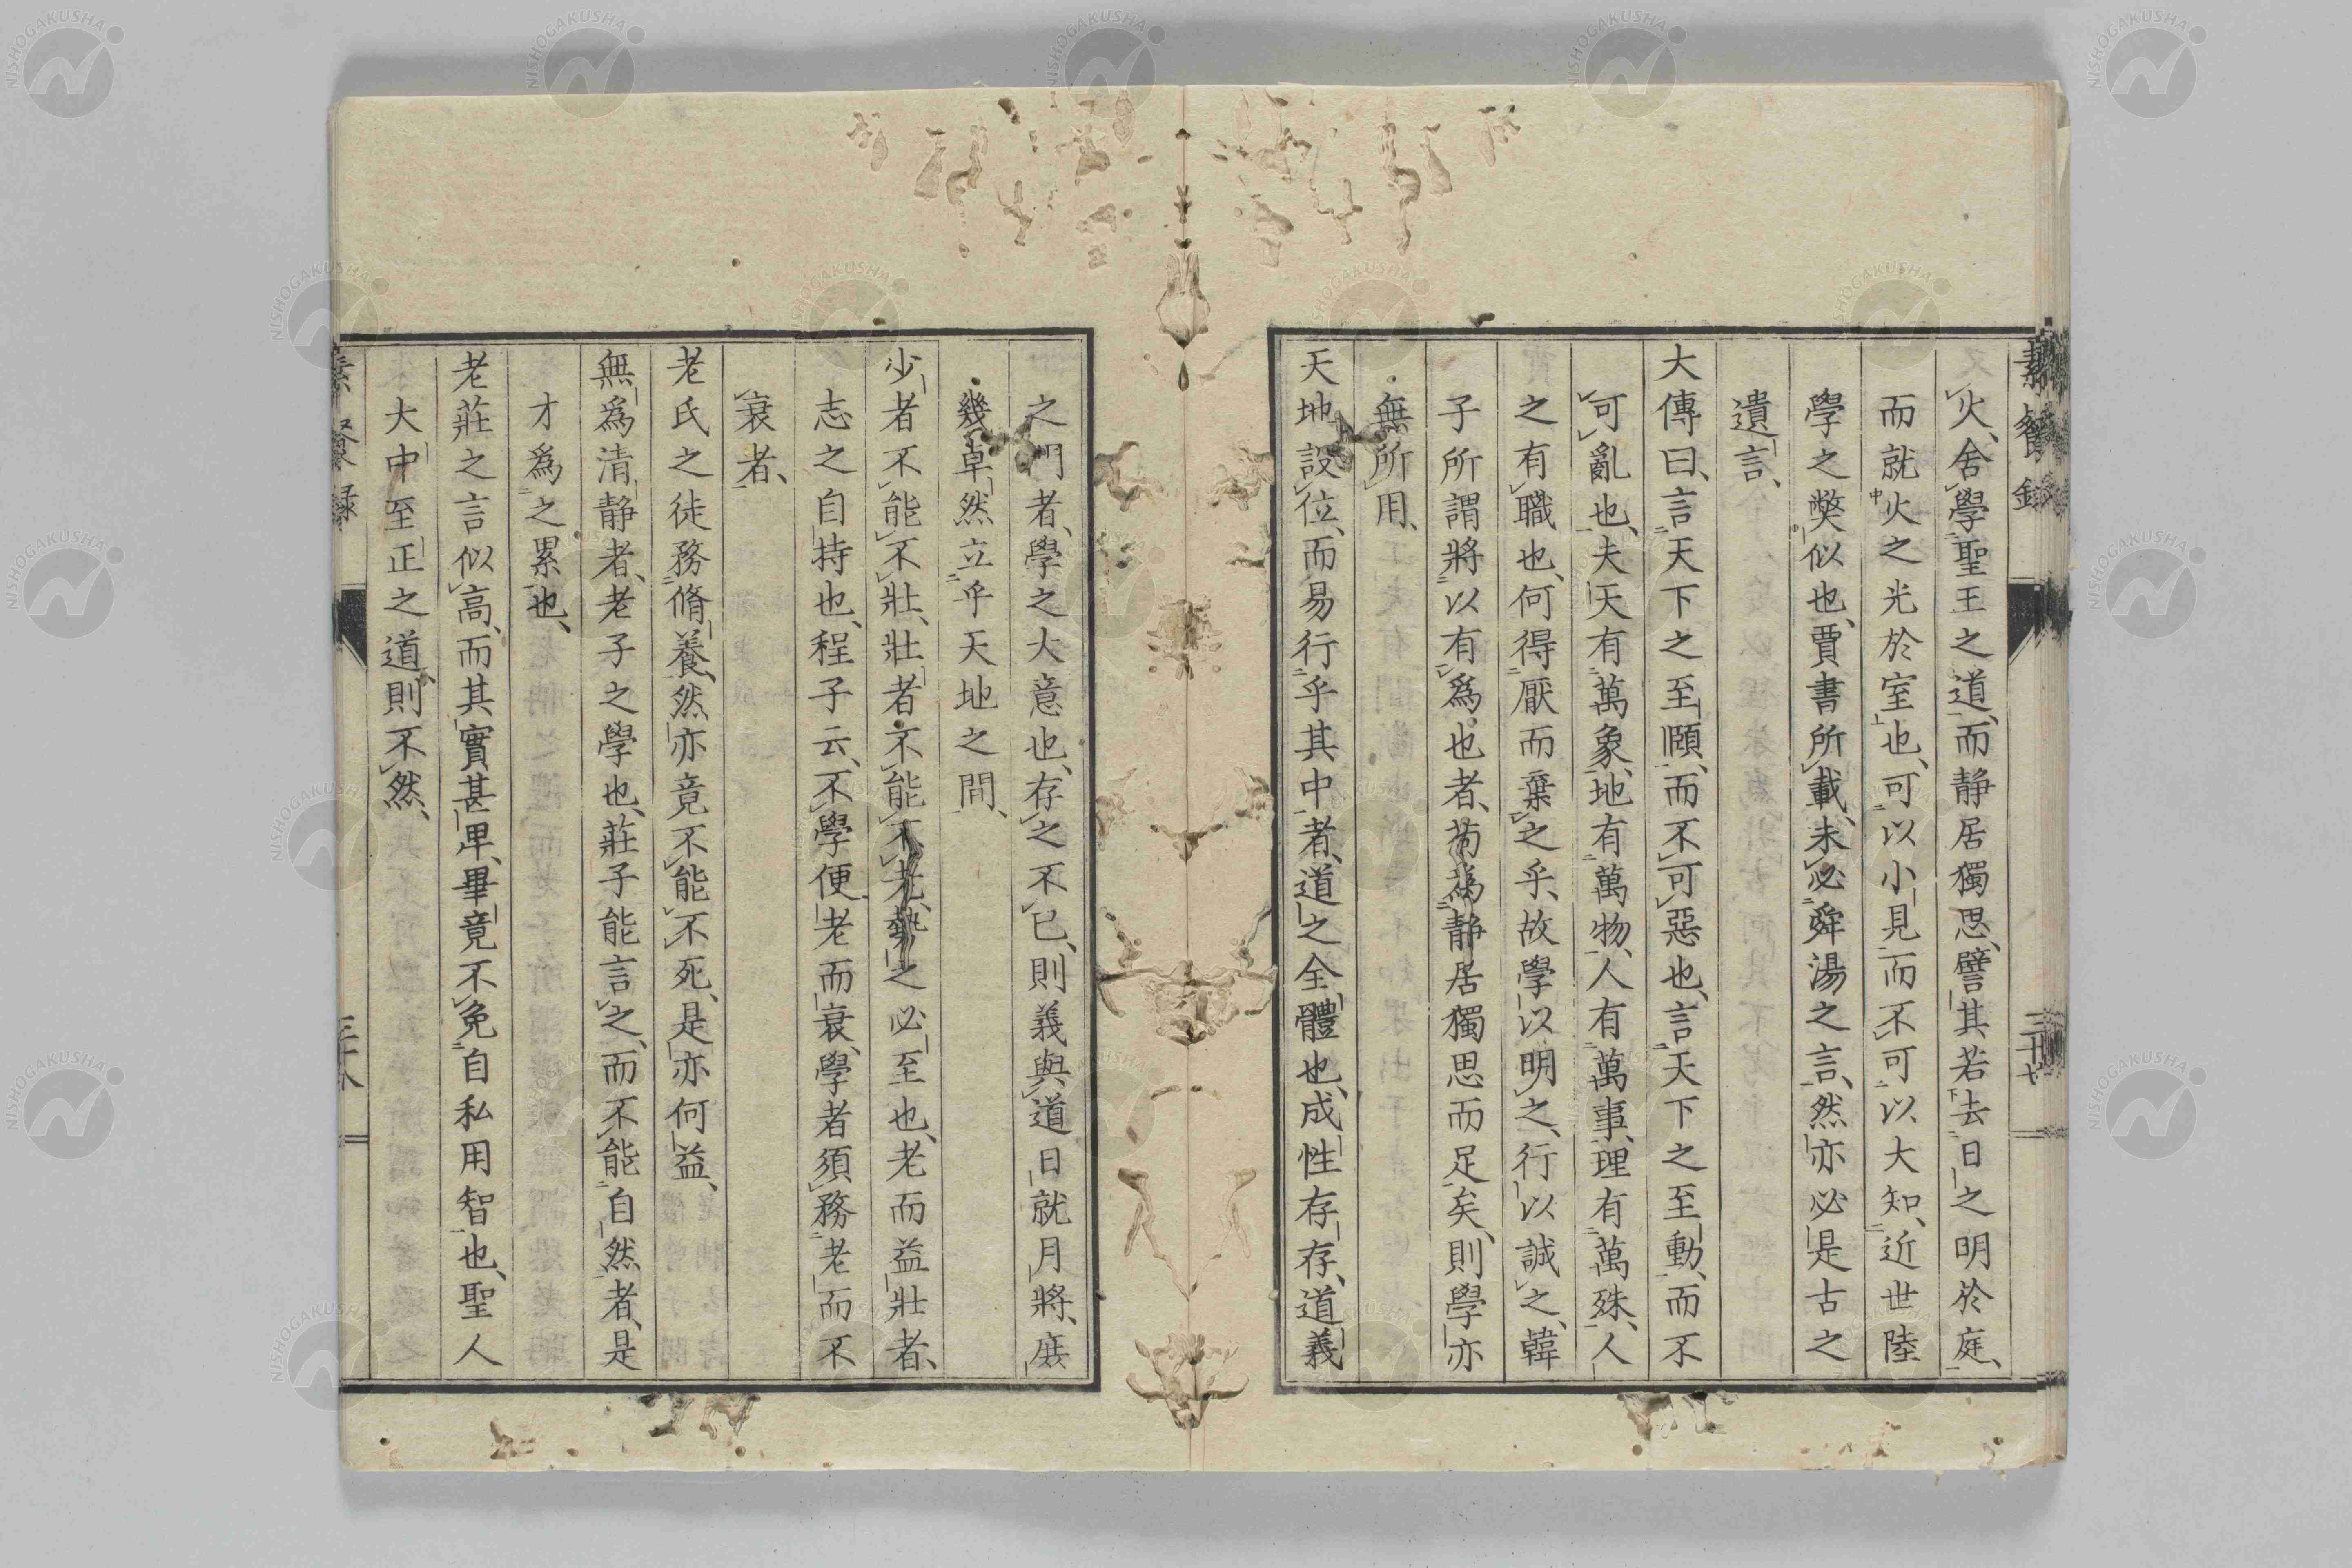 素餐録
三十七
火、舍學聖王之道、而静居獨思、譬其若去日之明於庭、
而就火之光於室也、可以小見而不可以大知、近世陸
學之獘似也、賈書所載、未必舜湯之言、然亦必是古之
遺言、
大傳曰、言天下之至賾、而不可惡也、言天下之至動、而不
可亂也、夫天有萬象、地有萬物、人有萬事、理有萬殊、人
之有職也、何得厭而棄之乎、故學以明之、行以誠之、韓
子所謂將以有爲也者、苟爲静居獨思而足矣、則學亦
無所用、
天地設位、而易行乎其中者、道之全體也、成性存存、道義
之門者、學之大意也、存之不已、則義與道日就月將、庶
幾卓然立乎天地之間、
少者不能不壯、壯者不能不老、勢之必至也、老而益壯者、
志之自持也、程子云、不學便老而衰、學者須務老而不
衰者、
老氏之徒務脩養、然亦竟不能不死、是亦何益、
無爲清静者、老子之學也、莊子能言之、而不能自然者、是
才爲之累也、
老莊之言似高、而其實甚卑、畢竟不免自私用智也、聖人
大中至正之道、則不然、
素餐録
三十八
NISHOGAKUSHA